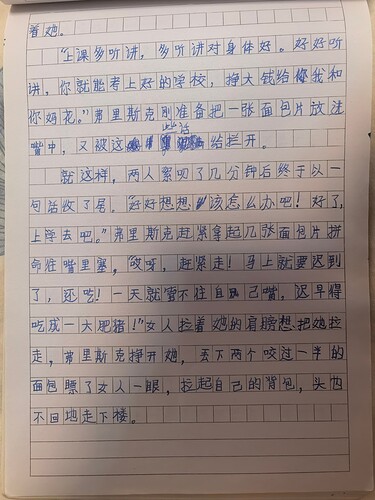 着她。
“上课多听讲，多听讲对身体好。好好听
讲，你就能考上好的学校，挣大钱给你我和
你妈花。”弗里斯克刚准备把一张面包片放进
嘴中，又被这些话给拦开。
就这样，两人絮叨了几分钟后终于以一
句话收了尾。“好好想想该怎么办吧！好了，
上学去吧。”弗里斯克赶紧拿起几张面包片拼
命往嘴里塞，“哎呀，赶紧走！马上就要迟到
了，还吃！一天就管不住自己嘴，迟早得
吃成一大肥猪！”女人拉着她的肩膀想把她拉
走，弗里斯克挣开她，丢下两个咬过一半的
面包瞟了女人一眼，拉起自己的背包，头也
不回地走下楼。